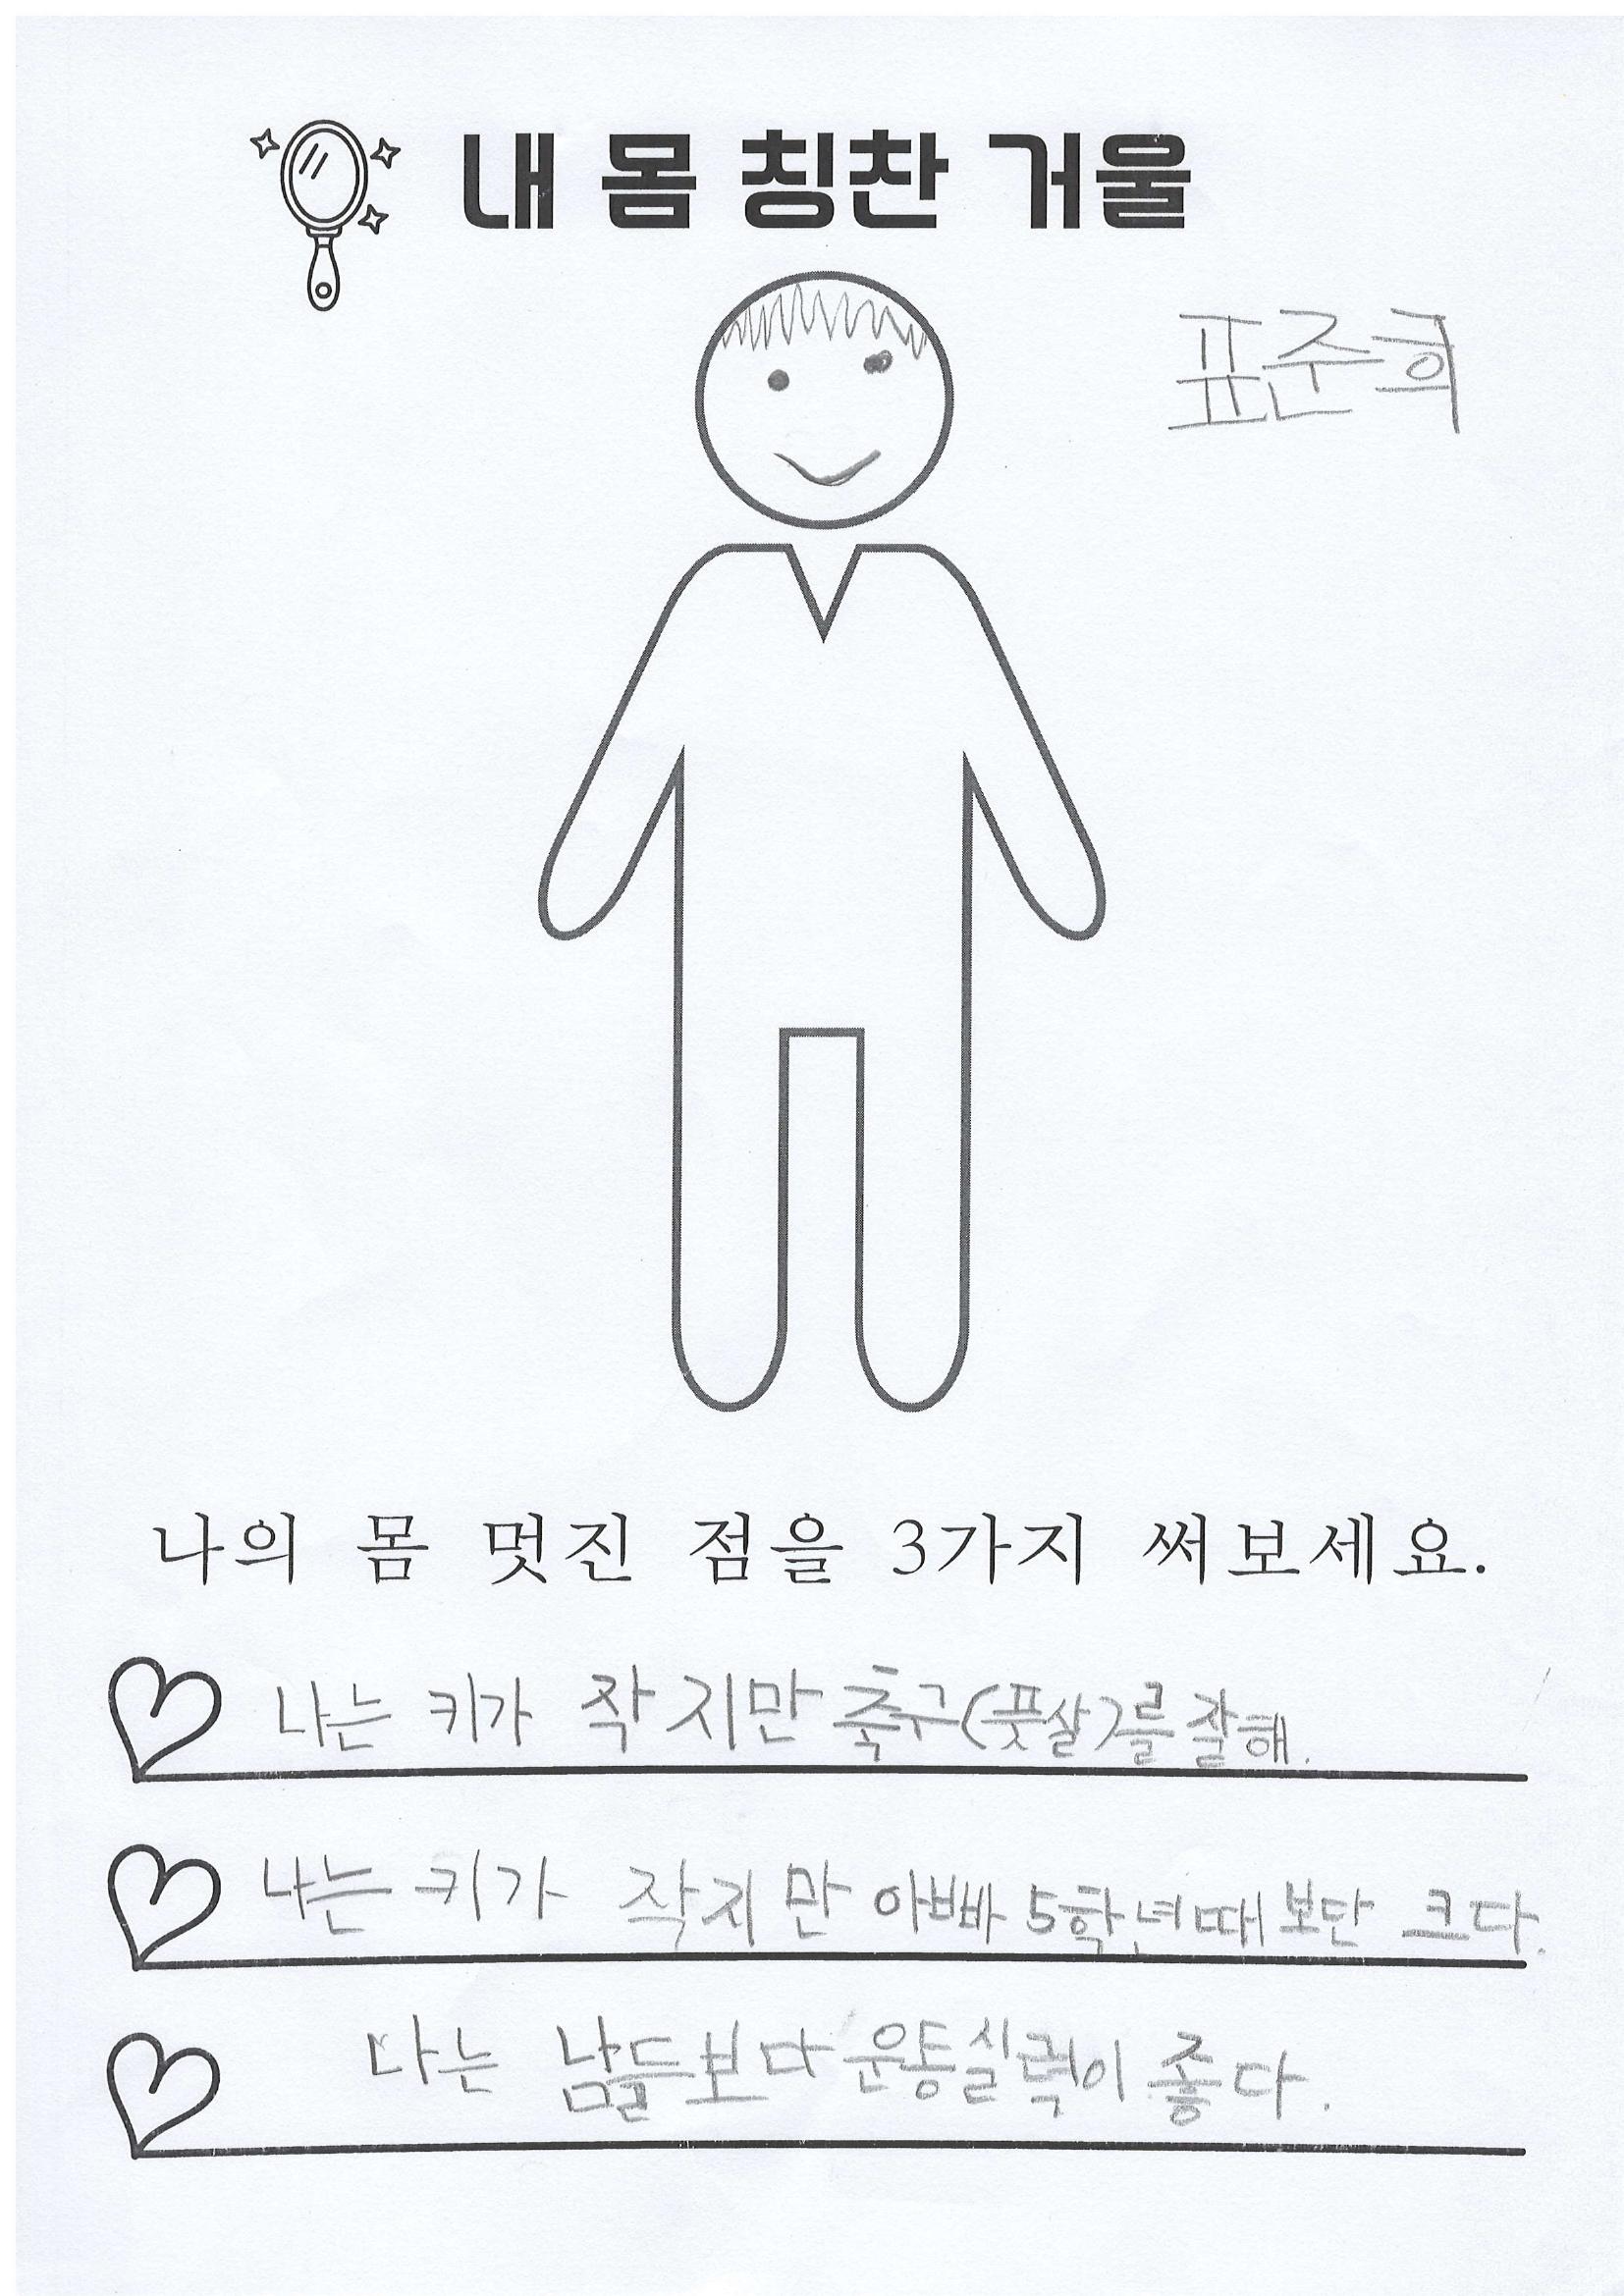 내 몸 칭찬 거울
표준희
나의 몸 멋진 점을 3가지 써보세요.
나는 키가 작지만 축구(풋살)를 잘해.
나는 키가 작지만 아빠 5학년때 보단 크다.
나는 남들보다 운동실력이 좋다.